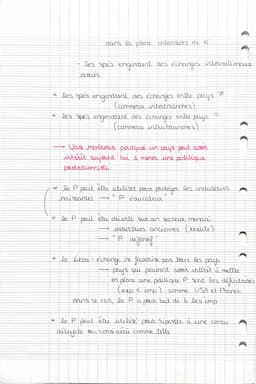 dans la prod intensives de K
- Les spés engendrent des échanges internationaux
croisés
* Les spés engendrent des échanges entre pays ≠
(commerce interbranches)
* Les spés engendrent des échanges entre pays =
(commerce intrabranches)
→ Vos motives pourquoi un pays peut avoir
intérêt aujourd hui à mener une politique
protectionniste
* Le P peut être utilisé pour protéger les industries
naissantes → "P éducateur"
* Le P peut être orienté sur un secteur menacé
→ industries anciennes (textile)
→ "P défensif"
* Le libre-échange ne favorise pas tous les pays
→ pays qui peuvent avoir intérêt à mettre
en place une politique P sont les déficitaires
(exp < imp) comme USA et France
dans ce cas, le P a pour but de ↓ les imp
* Le P peut être utilisé pour riposter à une conc
déloyale ou considérée comme telle